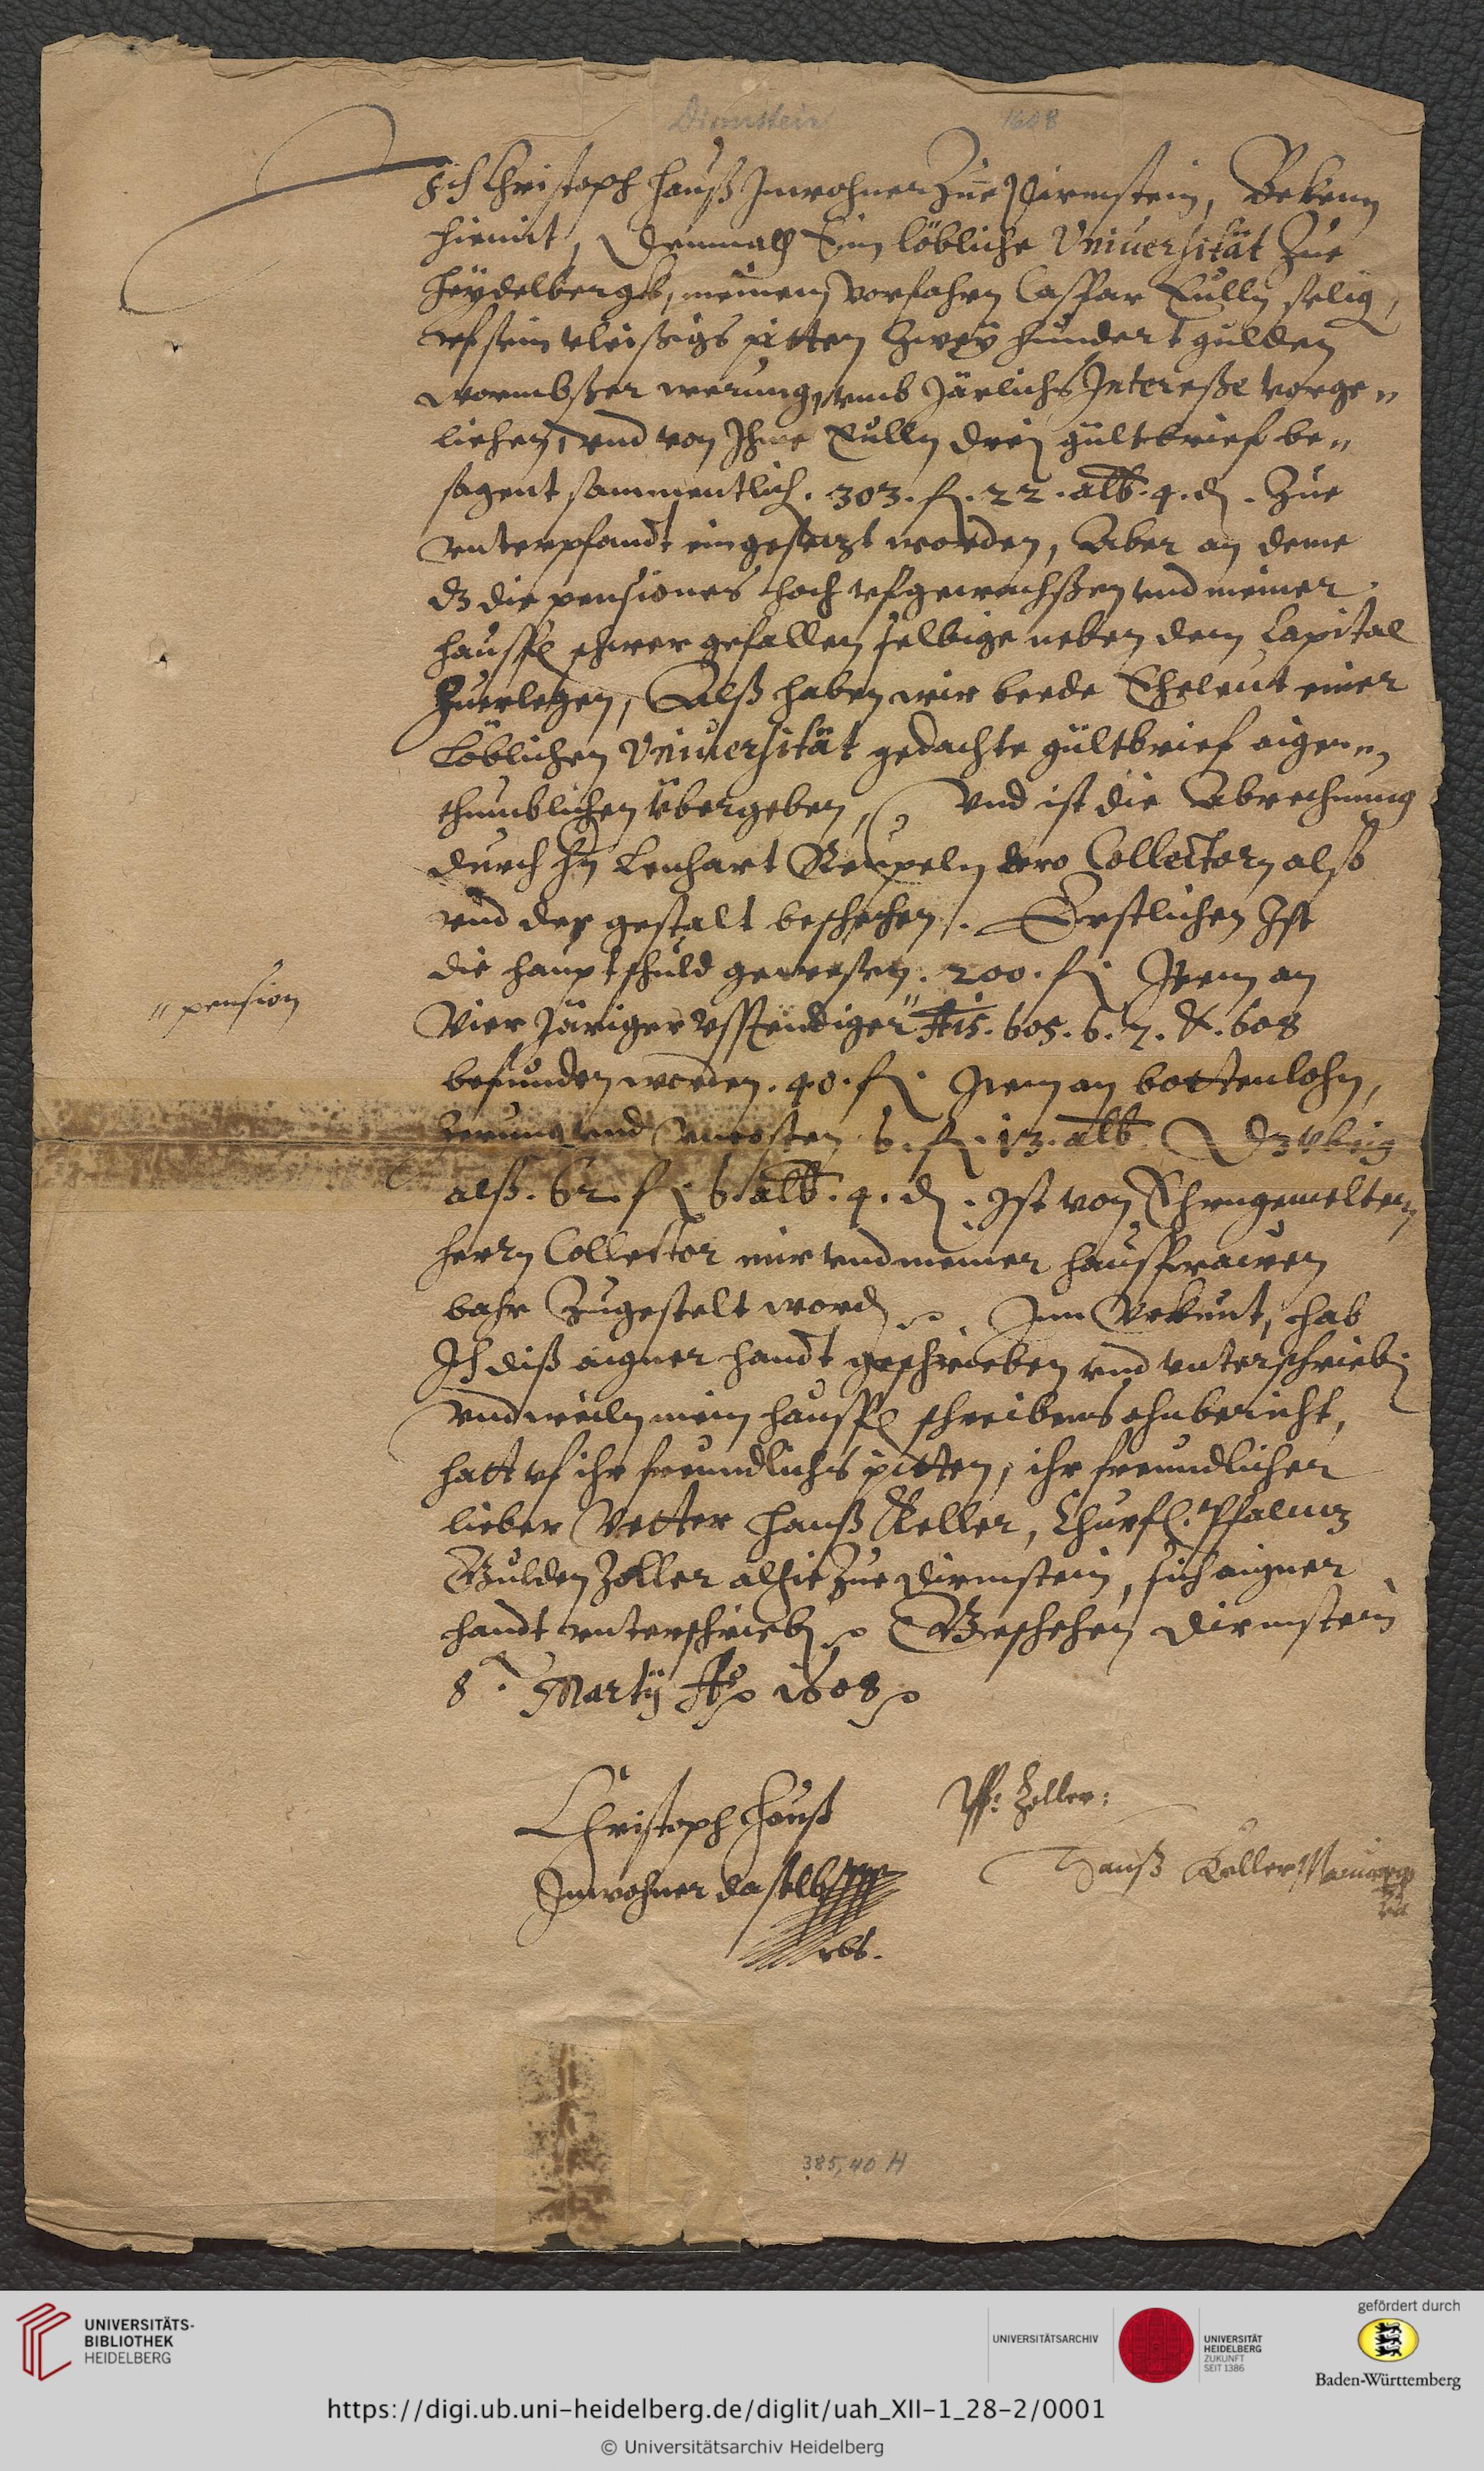 Dirmstein 1608
Ich Christoph Hauß Inwohner Zue Dirmstein, Bekenn
hiemit, Demnach Ein löbliche Vniuersität Zue
Heydelbergk, meinem Vorfahrn Caspar Lulln selig,
vf sein vleißigs pitten Zwey hundert gulden
wormbßer werung, vmb Järlichs Interesse vorge„
liehen, vnd von Ihme Lulln drei gültbrief be„
sagent sammentlich. 303. fl. 22. alb. 4. d. Zue
vnterpfandt eingesezt worden, Aber an deme
dz die pensiones hoch vfgewachßen vnd meiner
haußfr schwer gefallen selbige neben dem Capital
Zuerlegen, Alß haben wir beede Eheleut einer
Löblichen Vniuersität gedachte gültbrief aigen„
thumblichen übergeben, Vnd ist die Abrechnung
durch Hn Lenhart dero Collectorn also
vnd der gestalt beschehen. Erstlichen Ist
die hauptschuld gewesen. 200. fl. Item an
„ pension
Vier Järiger vsstendiger „ Ais. 605. 6. 7. &. 608
befunden worden. 40. fl. Item an bottenlohn,
Zerung vnd vncosten 6. fl. 13. alb. Dz vbrig
alß. 62. fl. 6. alb. 4. d. Ist von Ehrngemelten
herrn Collector mir vnd meiner haußfrawen
bahr Zugestelt word. Zum Vrkunt, hab
Ich diß aigner handt geschrieben vnd vnterschrieb.
Vnd weiln mein haußfr schreibens ohnbericht,
hatt vf ihr freundlichs pitten, ihr freundlicher
lieber Vetter Hanß Keller, Churfl. Pfaltz
Gulden Zoller alhie Zue Dirmstein, sich aigner
handt vnterschrieb. Geschehen Dirmstein
8. Martij Ao 1608
Christoph Hauß
Inwohner daselbst
Pf: Zoller:
Hanß Keller
385,40 H
UNIVERSITÄTS-
BIBLIOTHEK
HEIDELBERG
UNIVERSITÄTSARCHIV
UNIVERSITÄT
HEIDELBERG
ZUKUNFT
SEIT 1386
gefördert durch
Baden-Württemberg
https://digi.ub.uni-heidelberg.de/diglit/uah_XII-1_28-2/0001
© Universitätsarchiv Heidelberg